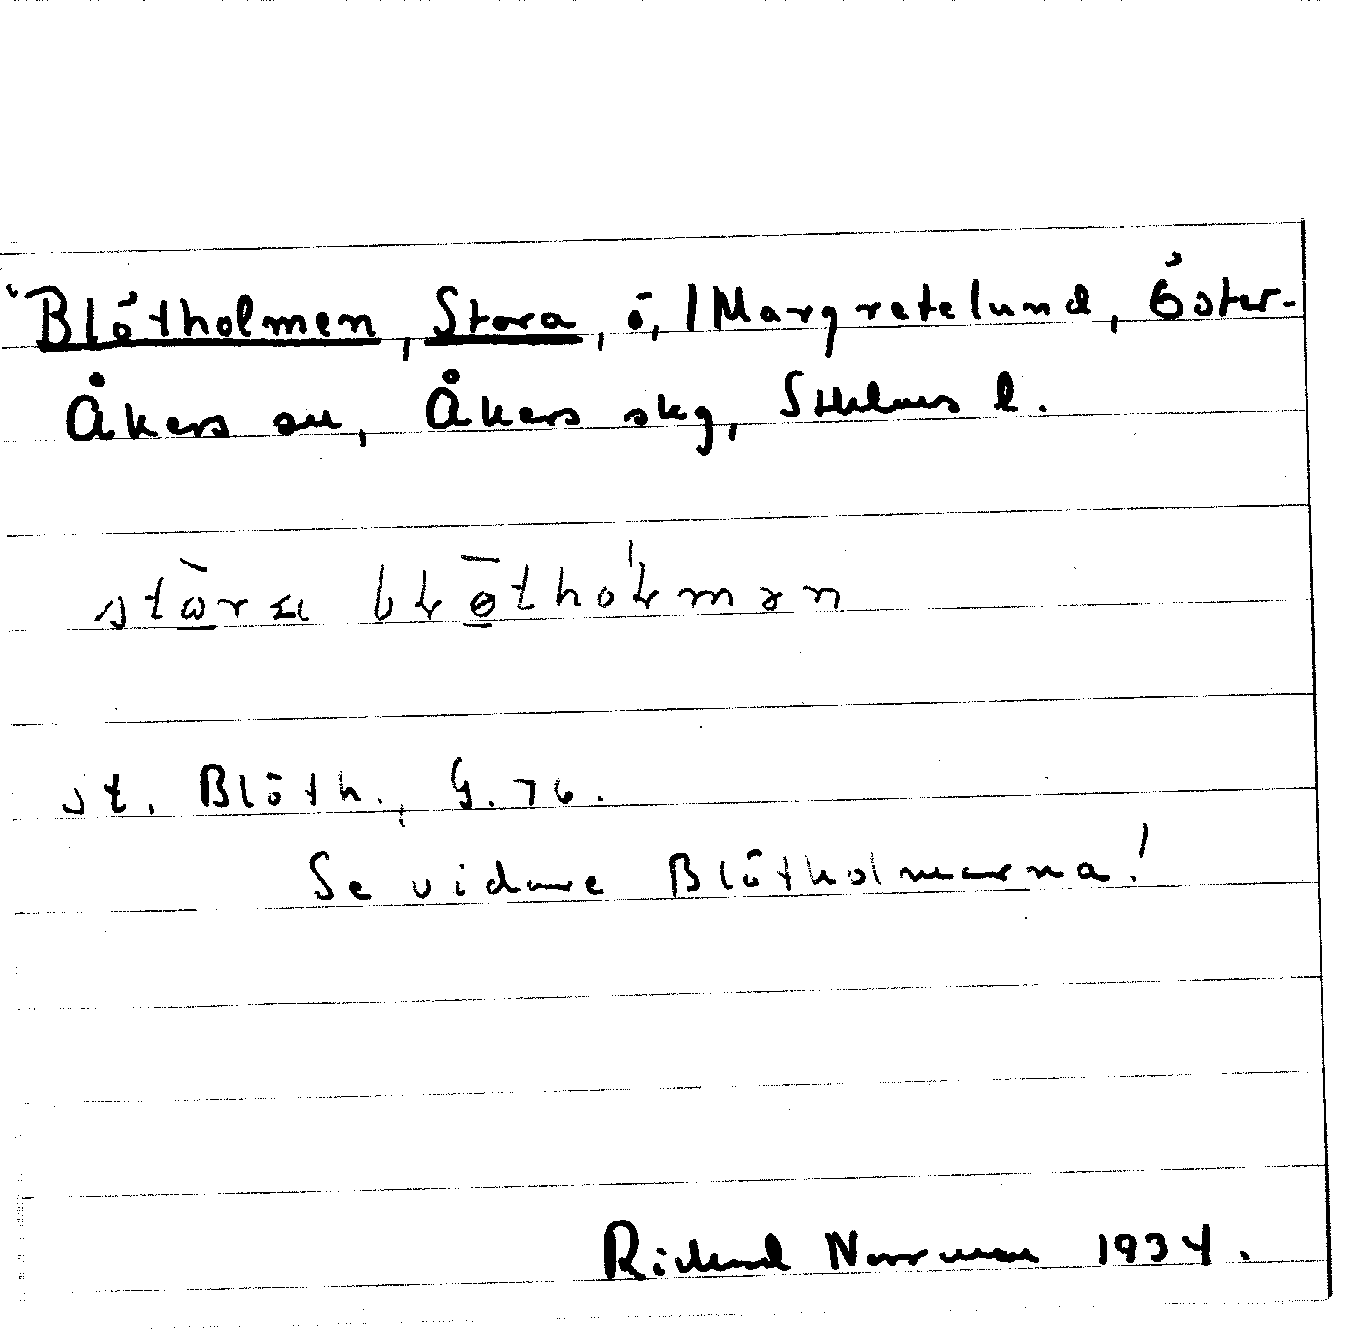 Blötholmen, Stora, ö, / Margretelund, Öster-
Åkers sn, Åkers skg, Sthlms l.
st. Blöth., G. 76.
Se vidare Blötholmarna!
Rickard Norrman 1934.